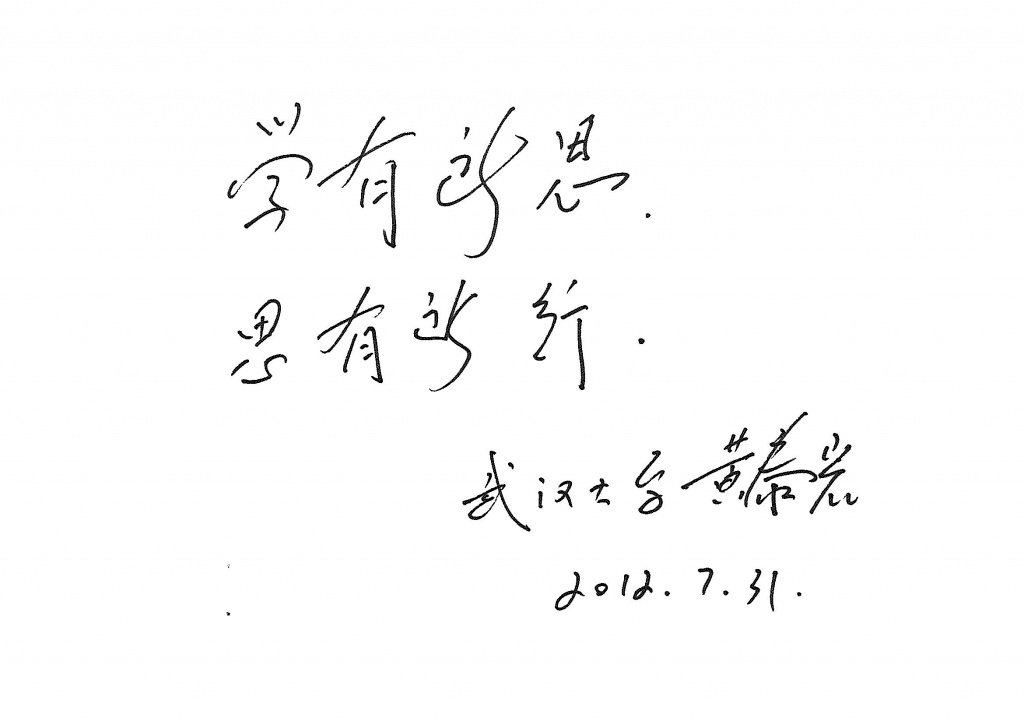 学有所思.
思有所行.
武汉大学 黄泰岩
2012.7.31.